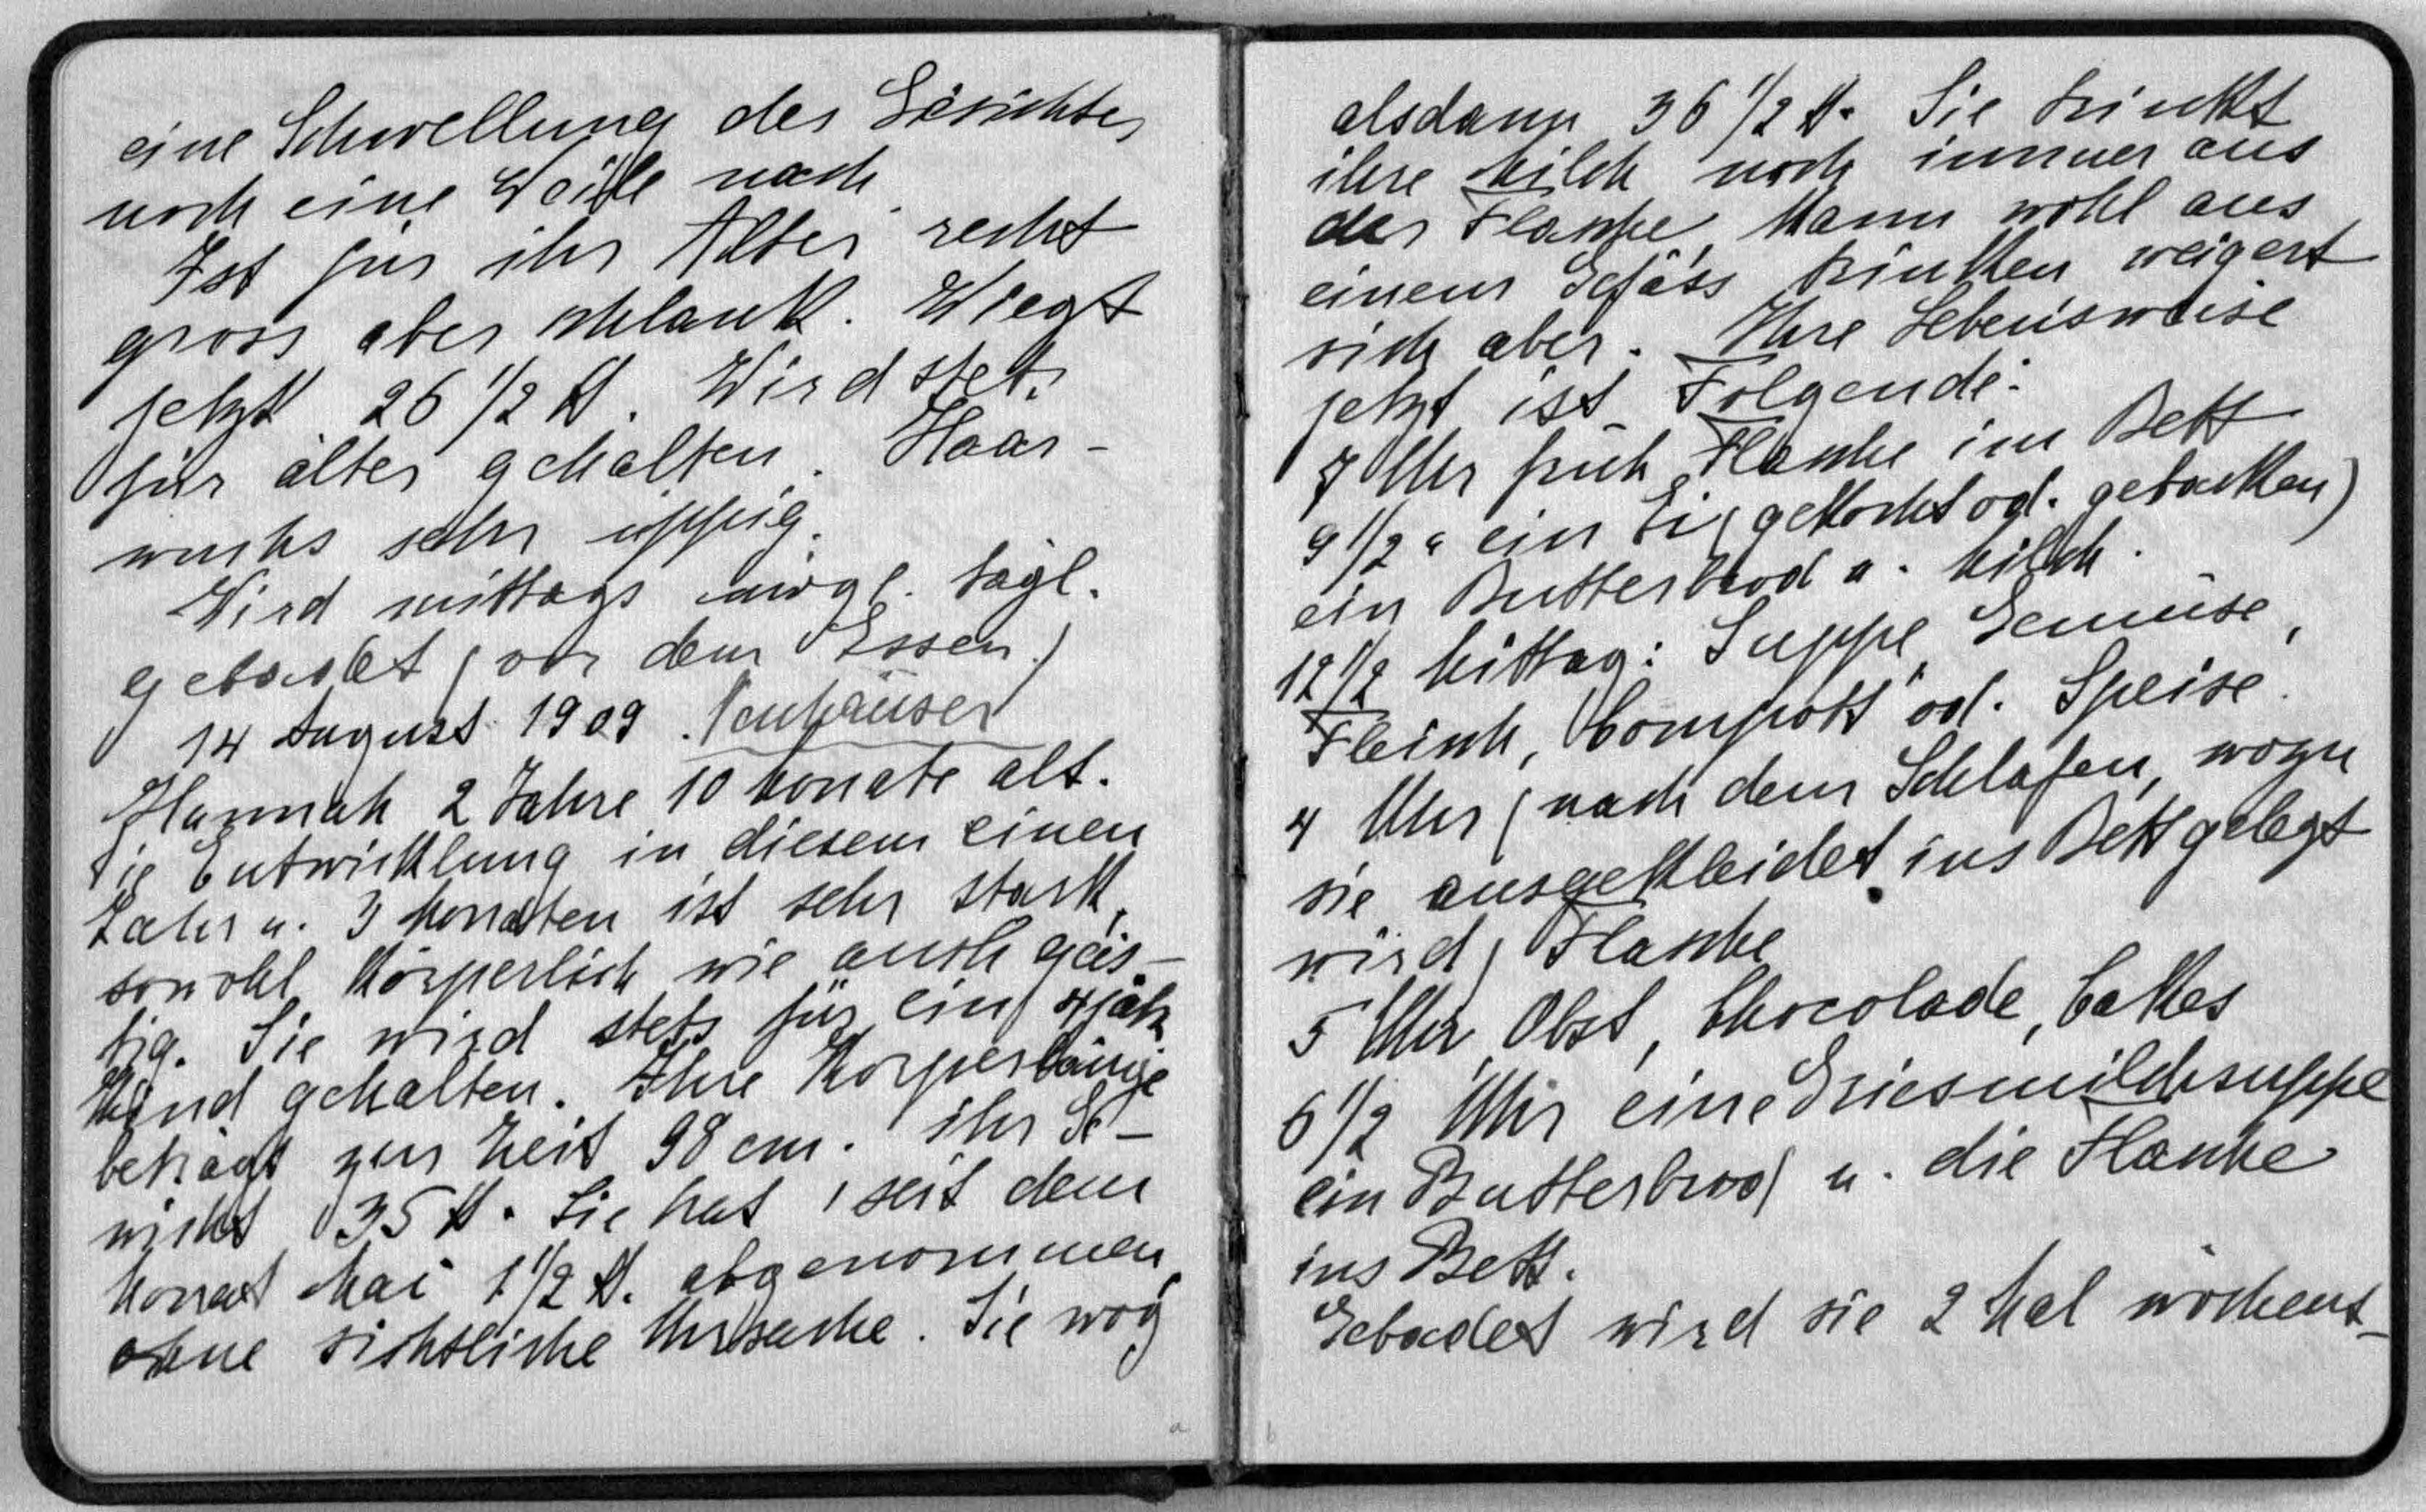 eine Schwellung des Gesichtes
noch eine Weile nach.
Ist für ihr Alter recht
gross aber schlank. Wiegt
jetzt 26 1/2 ℔. Wird stets
für älter gehalten. Haar-
wuchs sehr üppig.
Wird mittags mögl. tägl.
gebadet (vor dem Essen.)
14 August 1909. Neuhäuser
Hannah 2 Jahre 10 Monate alt.
Die Entwicklung in diesem einen
Jahr u. 3 Monaten ist sehr stark,
sowohl körperlich wie auch geis-
tig. Sie wird stets für ein 4jähr
Kind gehalten. Ihre Körperlänge
beträgt zur Zeit 98 cm. ihr Ge-
wicht 35 ℔. Sie hat seit dem
Monat Mai 1 1/2 ℔. abgenommen,
ohne sichtliche Ursache. Sie wog
a
alsdann 36 1/2 ℔. Sie trinkt
ihre Milch noch immer aus
der Flasche, kann wohl aus
einem Gefäss trinken weigert
sich aber. Ihre Lebensweise
jetzt ist Folgende:
7 Uhr früh Flasche im Bett
9 1/2 " ein Ei (gekocht od. gebacken)
ein Butterbrod u. Milch.
12 1/2 Mittag: Suppe, Gemüse,
Fleisch, Compott od. Speise.
4 Uhr (nach dem Schlafen, wozu
sie ausgekleidet ins Bett gelegt
wird) Flasche
5 Uhr Obst, Chocolade, Cakes
6 1/2 Uhr eine Griesmilchsuppe
ein Butterbrod u. die Flasche
ins Bett.
Gebadet wird sie 2 Mal wöchent-
b